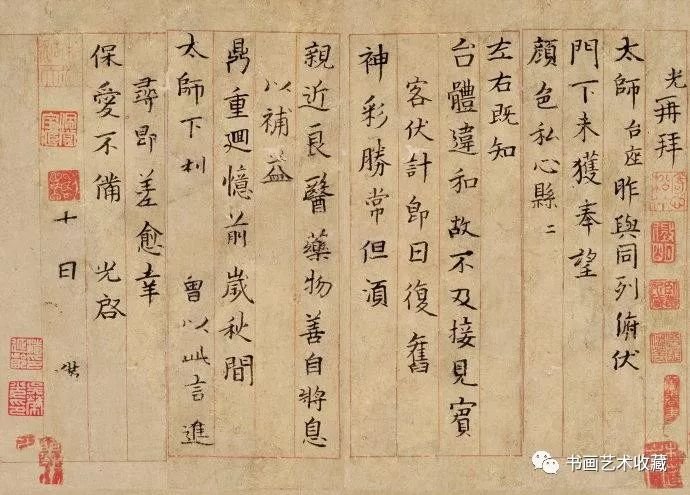 光再拜
太師台座昨與同列俯伏
門下未獲奉望
顏色私心縣〻
左右既知
台體違和故不及接見賓
客伏計即日復舊
神彩勝常但須
親近良醫藥物善自將息
以補益
鼎重迴憶前歲秋間
太師下利 曾以此言進
尋即差愈幸
保愛不備 光啓
十日
书画艺术收藏